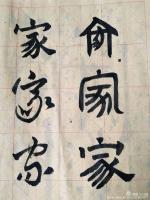 家家
家家家